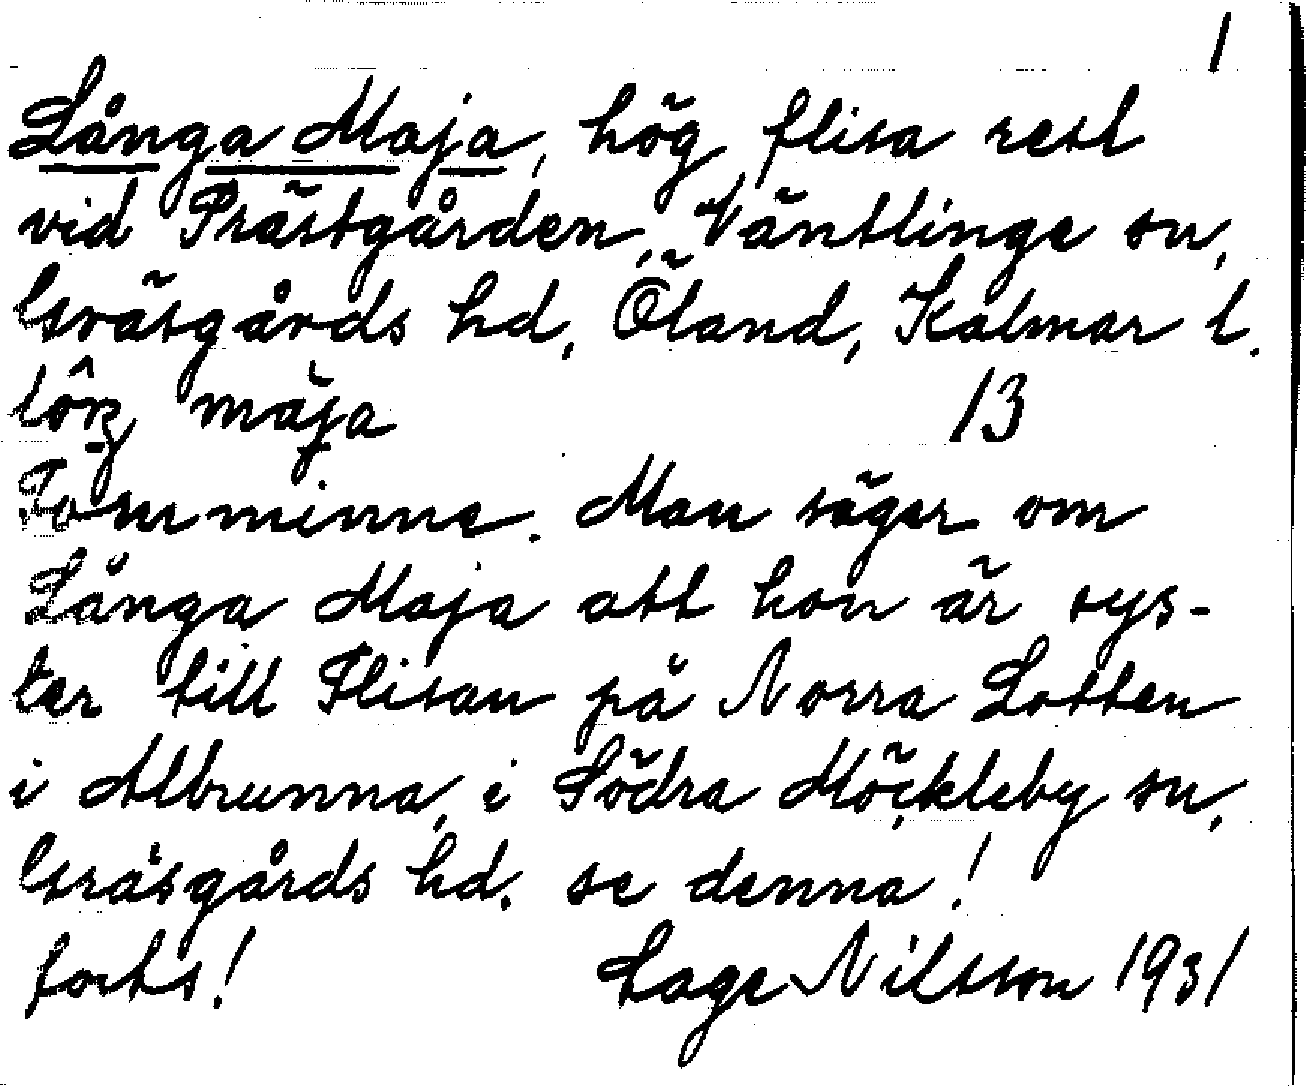 1
Långa Maja, hög flisa rest
vid Prästgården, Väntlinge sn,
Gräsgårds hd, Öland, Kalmar l.
maja 13
Fornminne. Man säger om
Långa Maja att hon är sys-
ter till Flisan på Norra Lotten
i Albrunna, i Södra Möckleby sn,
Gräsgårds hd. se denna!
forts! Lage Nilsson 1931